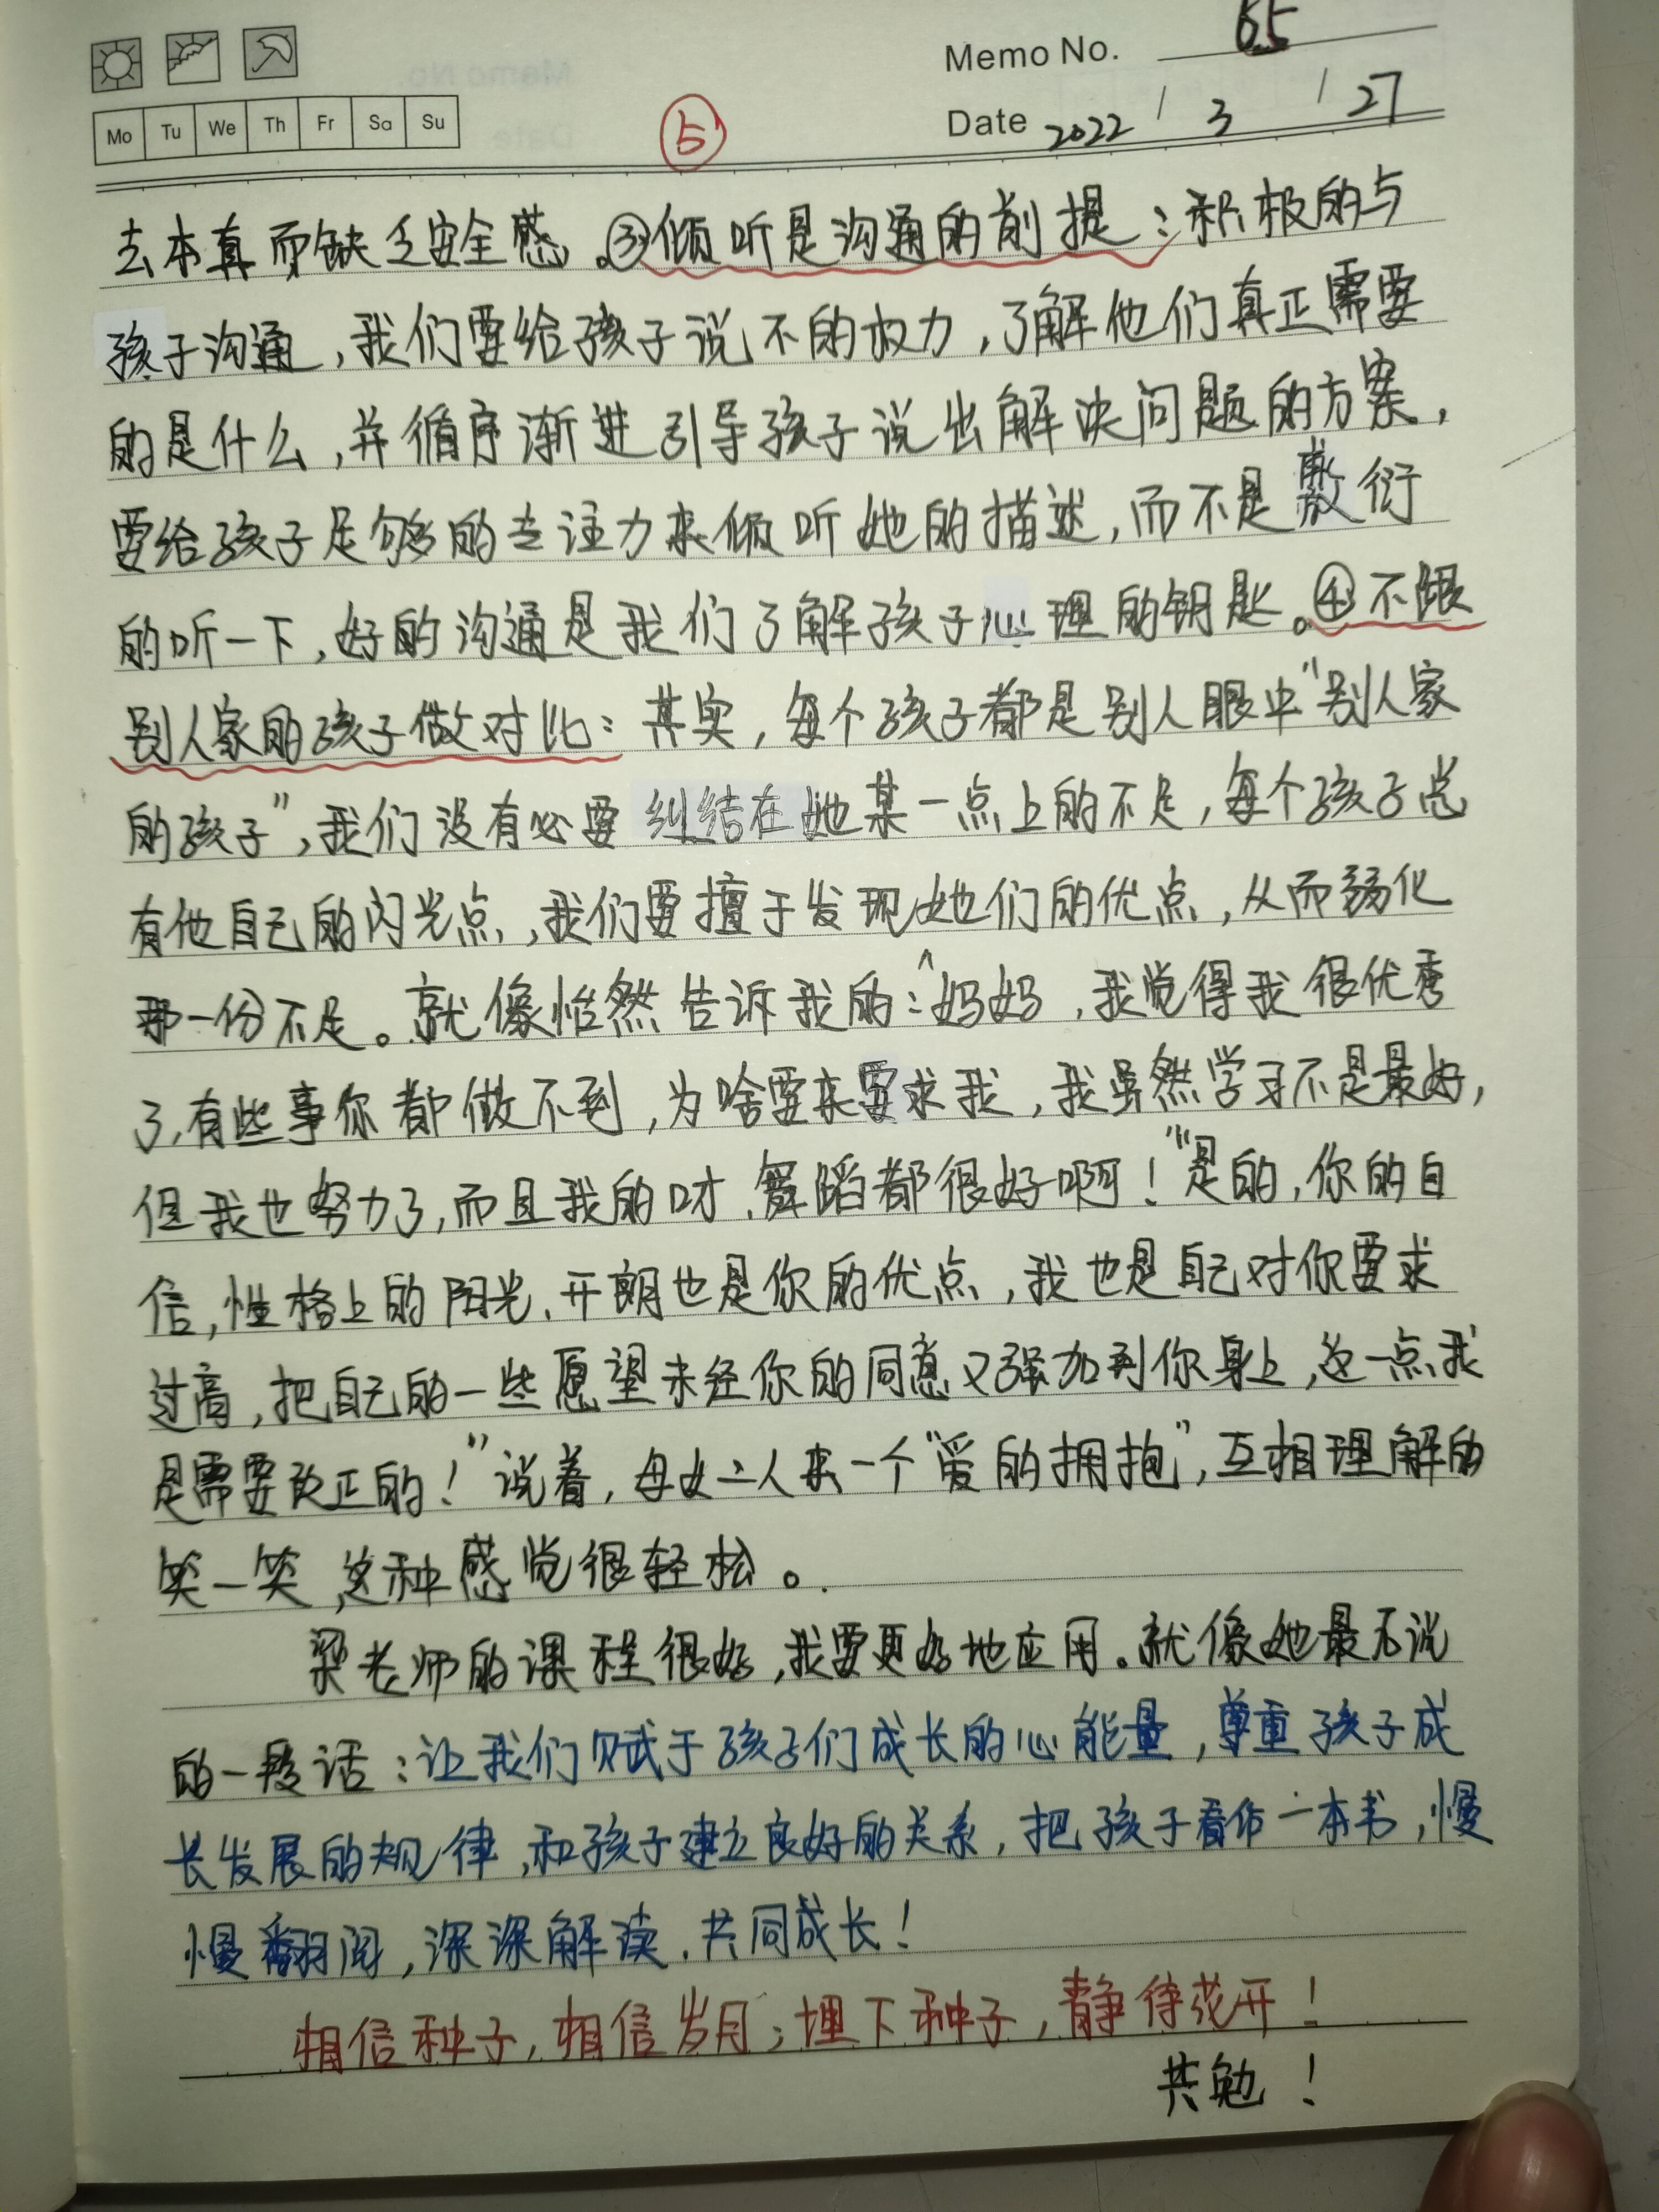 Memo No. 65
Mo Tu We Th Fr Sa Su
⑤
Date 2022 / 3 / 27
去本真而缺乏安全感。③倾听是沟通的前提：积极的与
孩子沟通，我们要给孩子说不的权力，了解他们真正需要
的是什么，并循序渐进引导孩子说出解决问题的方案，
要给孩子足够的专注力来倾听她的描述，而不是敷衍
的听一下，好的沟通是我们了解孩子心理的钥匙。④不跟
别人家的孩子做对比：其实，每个孩子都是别人眼中“别人家
的孩子”，我们没有必要纠结在她某一点上的不足，每个孩子总
有他自己的闪光点，我们要擅于发现她们的优点，从而弱化
那一份不足。就像怡然告诉我的：“妈妈，我觉得我很优秀
了，有些事你都做不到，为啥要来要求我，我虽然学习不是最好，
但我也努力了，而且我的口才、舞蹈都很好啊！”“是的，你的自
信，性格上的阳光、开朗也是你的优点，我也是自己对你要求
过高，把自己的一些愿望未经你的同意又强加到你身上，这一点我
是需要改正的！”说着，母女二人来一个“爱的拥抱”，互相理解的
笑一笑，这种感觉很轻松。
梁老师的课程很好，我要更好地应用。就像她最后说
的一段话：让我们赋于孩子们成长的心能量，尊重孩子成
长发展的规律，和孩子建立良好的关系，把孩子看作一本书，慢
慢翻阅，深深解读，共同成长！
相信种子，相信岁月；埋下种子，静待花开！
共勉！